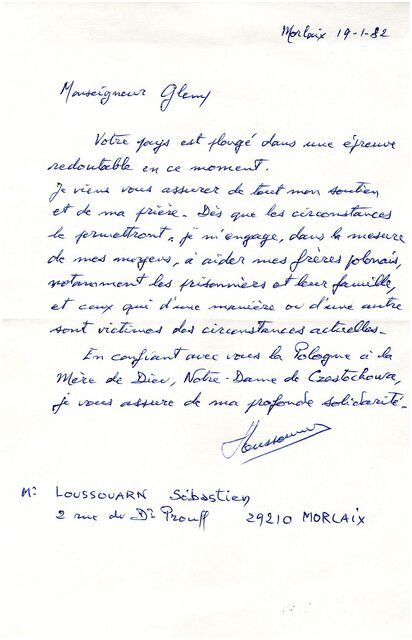 Morlaix 19-1-82
Monseigneur Glemp
Votre pays est plongé dans une épreuve
redoutable en ce moment.
Je viens vous assurer de tout mon soutien
et de ma prière. Dès que les circonstances
le permettront, je m'engage, dans la mesure
de mes moyens, à aider mes frères polonais,
notamment les prisonniers et leur famille,
et ceux qui d'une manière ou d'une autre
sont victimes des circonstances actuelles.
En confiant avec vous la Pologne à la
Mère de Dieu, Notre-Dame de Czestochowa,
je vous assure de ma profonde solidarité.
Loussouarn
Mr LOUSSOUARN Sébastien
2 rue du Dr Prouff 29210 MORLAIX